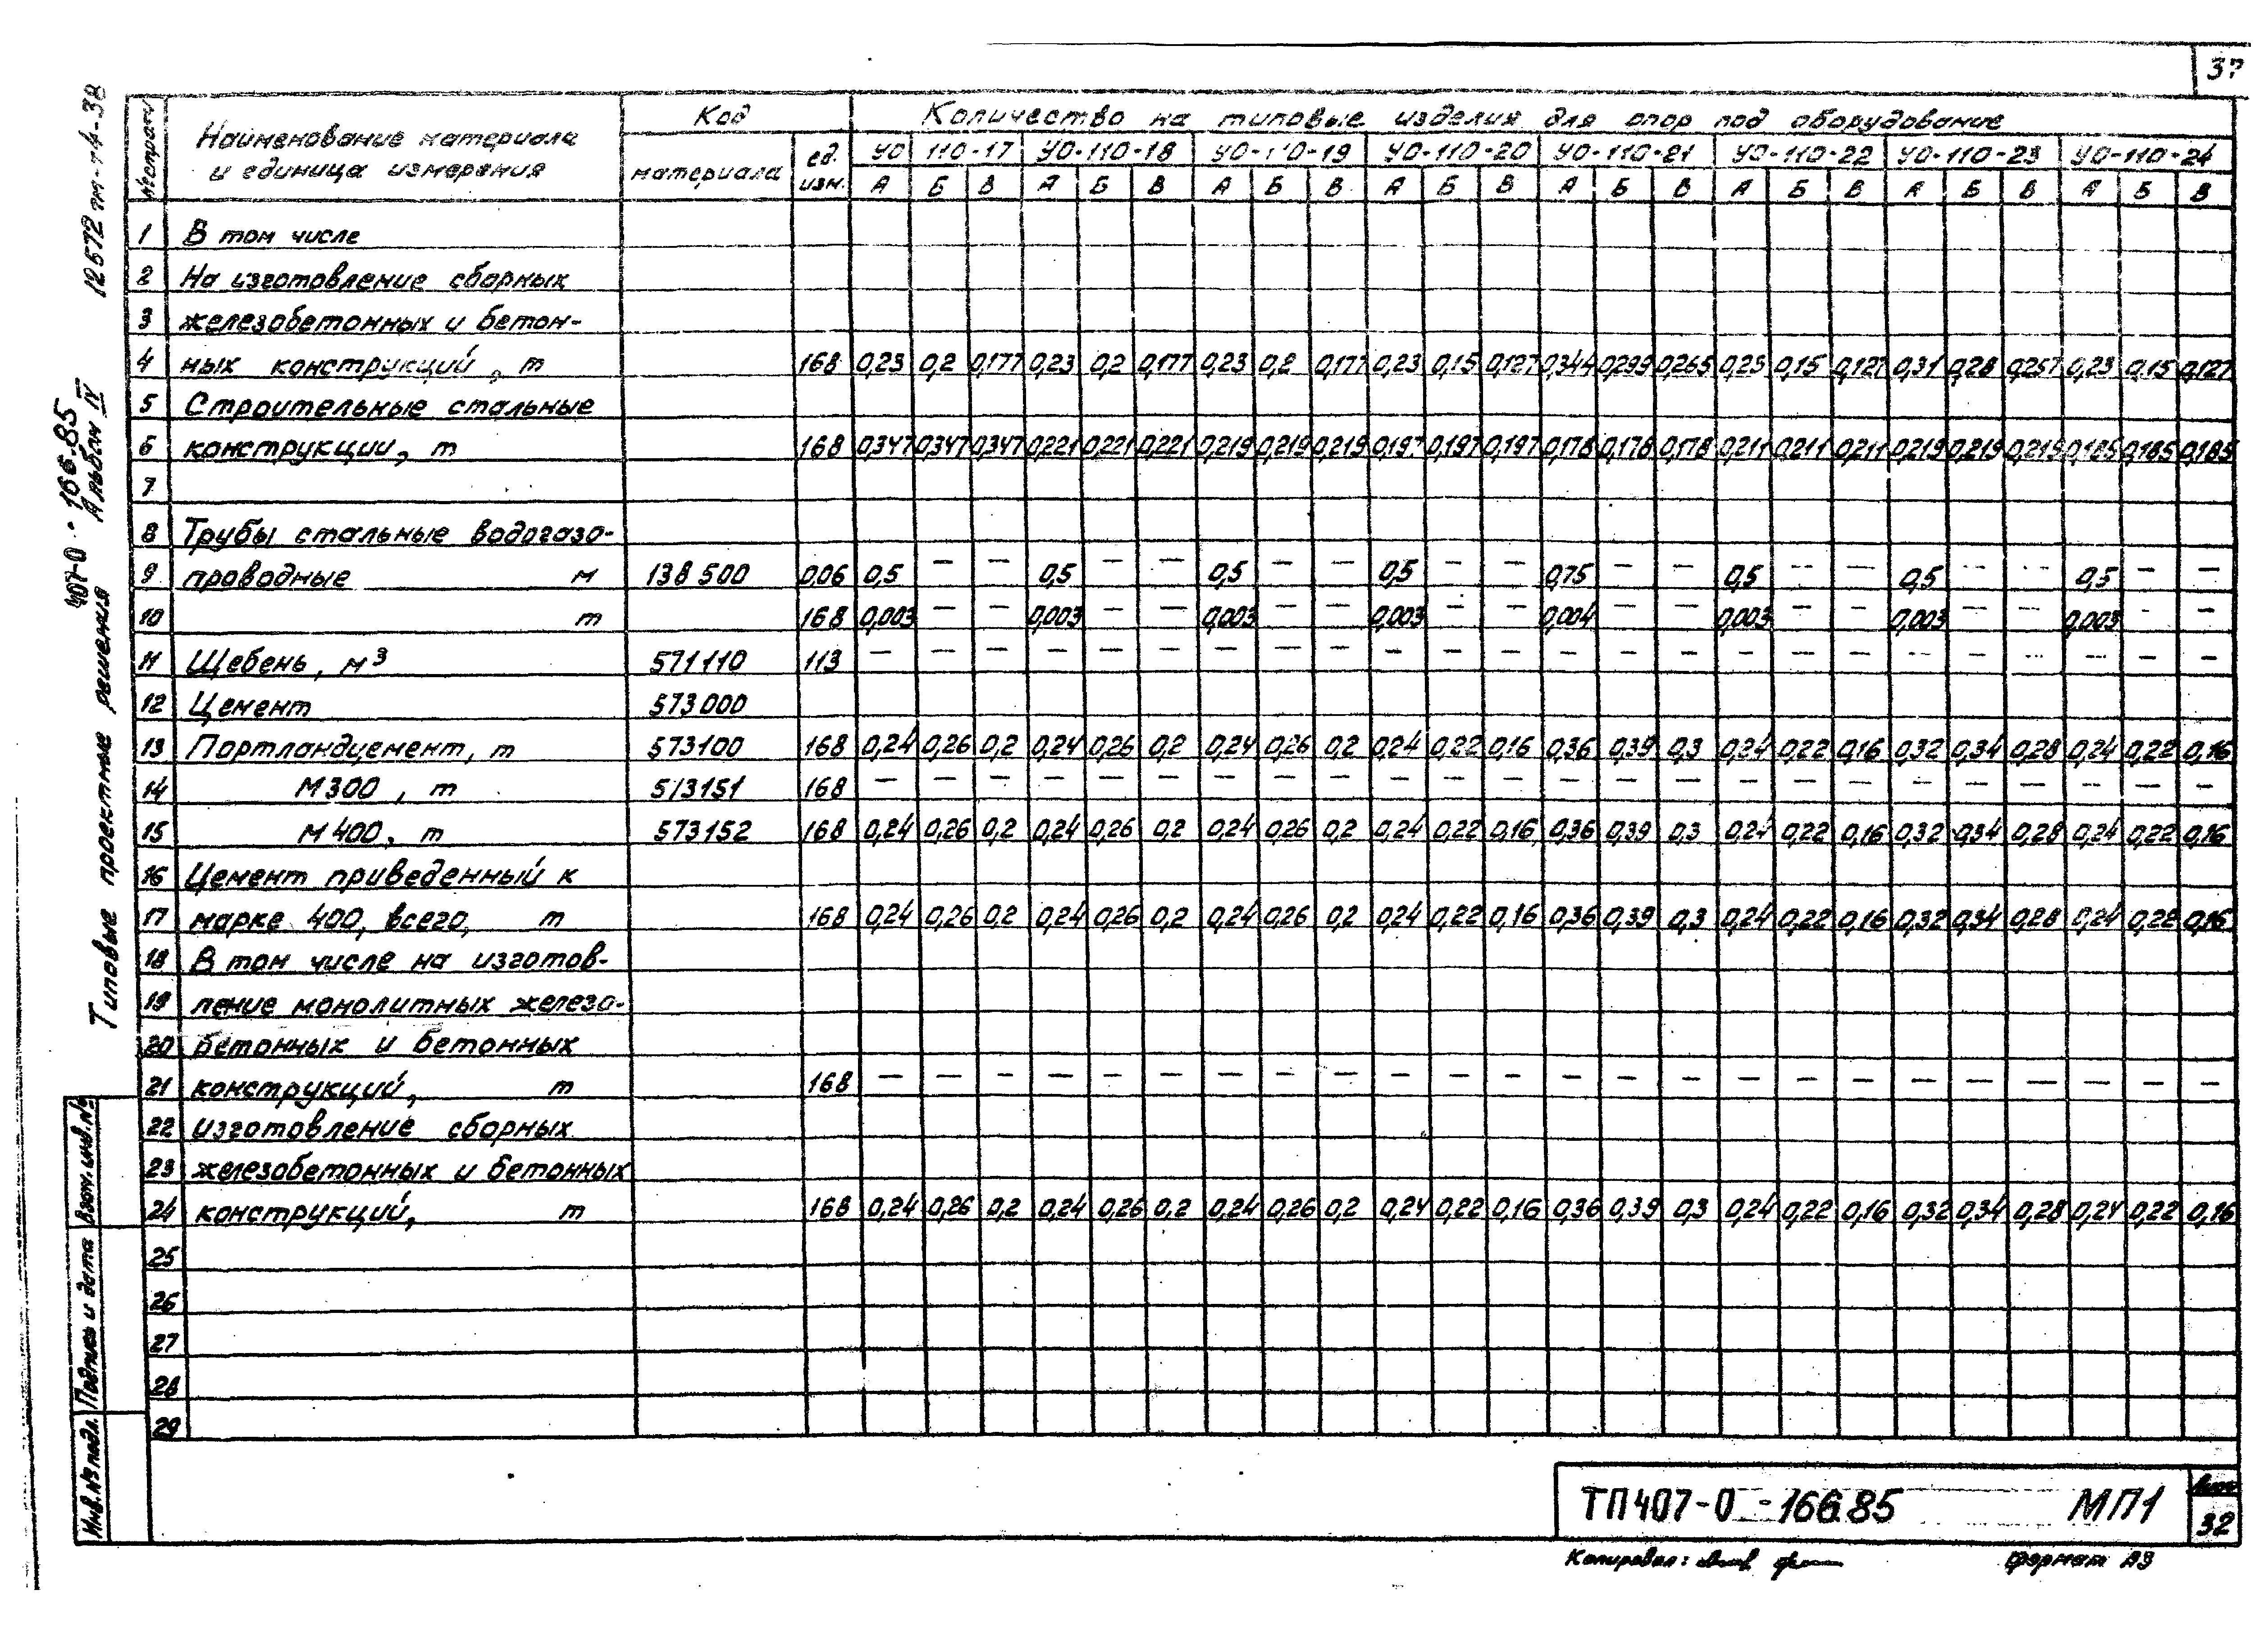 37
12572тм-т4-38
407-0-166.85
Альбом IV
Типовые проектные решения
Взам. инв. №
Подпись и дата
Инв. № подл.
№ строки
Наименование материала
и единица измерения
Код
материала
ед. изм.
Количество на типовые изделия для опор под оборудование
УО 110-17 УО-110-18 УО-110-19 УО-110-20 УО-110-21 УО-110-22 УО-110-23 УО-110-24
А Б В А Б В А Б В А Б В А Б В А Б В А Б В А Б В
1 В том числе
2 На изготовление сборных
3 железобетонных и бетон-
4 ных конструкций, т 168 0,23 0,2 0,177 0,23 0,2 0,177 0,23 0,2 0,177 0,23 0,15 0,127 0,344 0,299 0,265 0,23 0,15 0,127 0,31 0,28 0,257 0,23 0,15 0,127
5 Строительные стальные
6 конструкции, т 168 0,347 0,347 0,347 0,221 0,221 0,221 0,219 0,219 0,219 0,197 0,197 0,197 0,178 0,178 0,178 0,211 0,211 0,211 0,219 0,219 0,219 0,185 0,185 0,185
7
8 Трубы стальные водогазо-
9 проводные м 138500 006 0,5 — — 0,5 — — 0,5 — — 0,5 — — 0,75 — — 0,5 — — 0,5 — — 0,5 — —
10 т 168 0,003 — — 0,003 — — 0,003 — — 0,003 — — 0,004 — — 0,003 — — 0,003 — — 0,003 — —
11 Щебень, м³ 571110 113 — — — — — — — — — — — — — — — — — — — — — — — —
12 Цемент 573000
13 Портландцемент, т 573100 168 0,24 0,26 0,2 0,24 0,26 0,2 0,24 0,26 0,2 0,24 0,22 0,16 0,36 0,39 0,3 0,24 0,22 0,16 0,32 0,34 0,28 0,24 0,22 0,16
14 М300, т 573151 168 — — — — — — — — — — — — — — — — — — — — — — — —
15 М400, т 573152 168 0,24 0,26 0,2 0,24 0,26 0,2 0,24 0,26 0,2 0,24 0,22 0,16 0,36 0,39 0,3 0,24 0,22 0,16 0,32 0,34 0,28 0,24 0,22 0,16
16 Цемент приведенный к
17 марке 400, всего, т 168 0,24 0,26 0,2 0,24 0,26 0,2 0,24 0,26 0,2 0,24 0,22 0,16 0,36 0,39 0,3 0,24 0,22 0,16 0,32 0,34 0,28 0,24 0,22 0,16
18 В том числе на изготов-
19 ление монолитных железо-
20 бетонных и бетонных
21 конструкций, т 168 — — — — — — — — — — — — — — — — — — — — — — — —
22 изготовление сборных
23 железобетонных и бетонных
24 конструкций, т 168 0,24 0,26 0,2 0,24 0,26 0,2 0,24 0,26 0,2 0,24 0,22 0,16 0,36 0,39 0,3 0,24 0,22 0,16 0,32 0,34 0,28 0,24 0,22 0,16
25
26
27
28
29
ТП407-0-166.85 МП1
Лист
32
Копировал: Формат А3